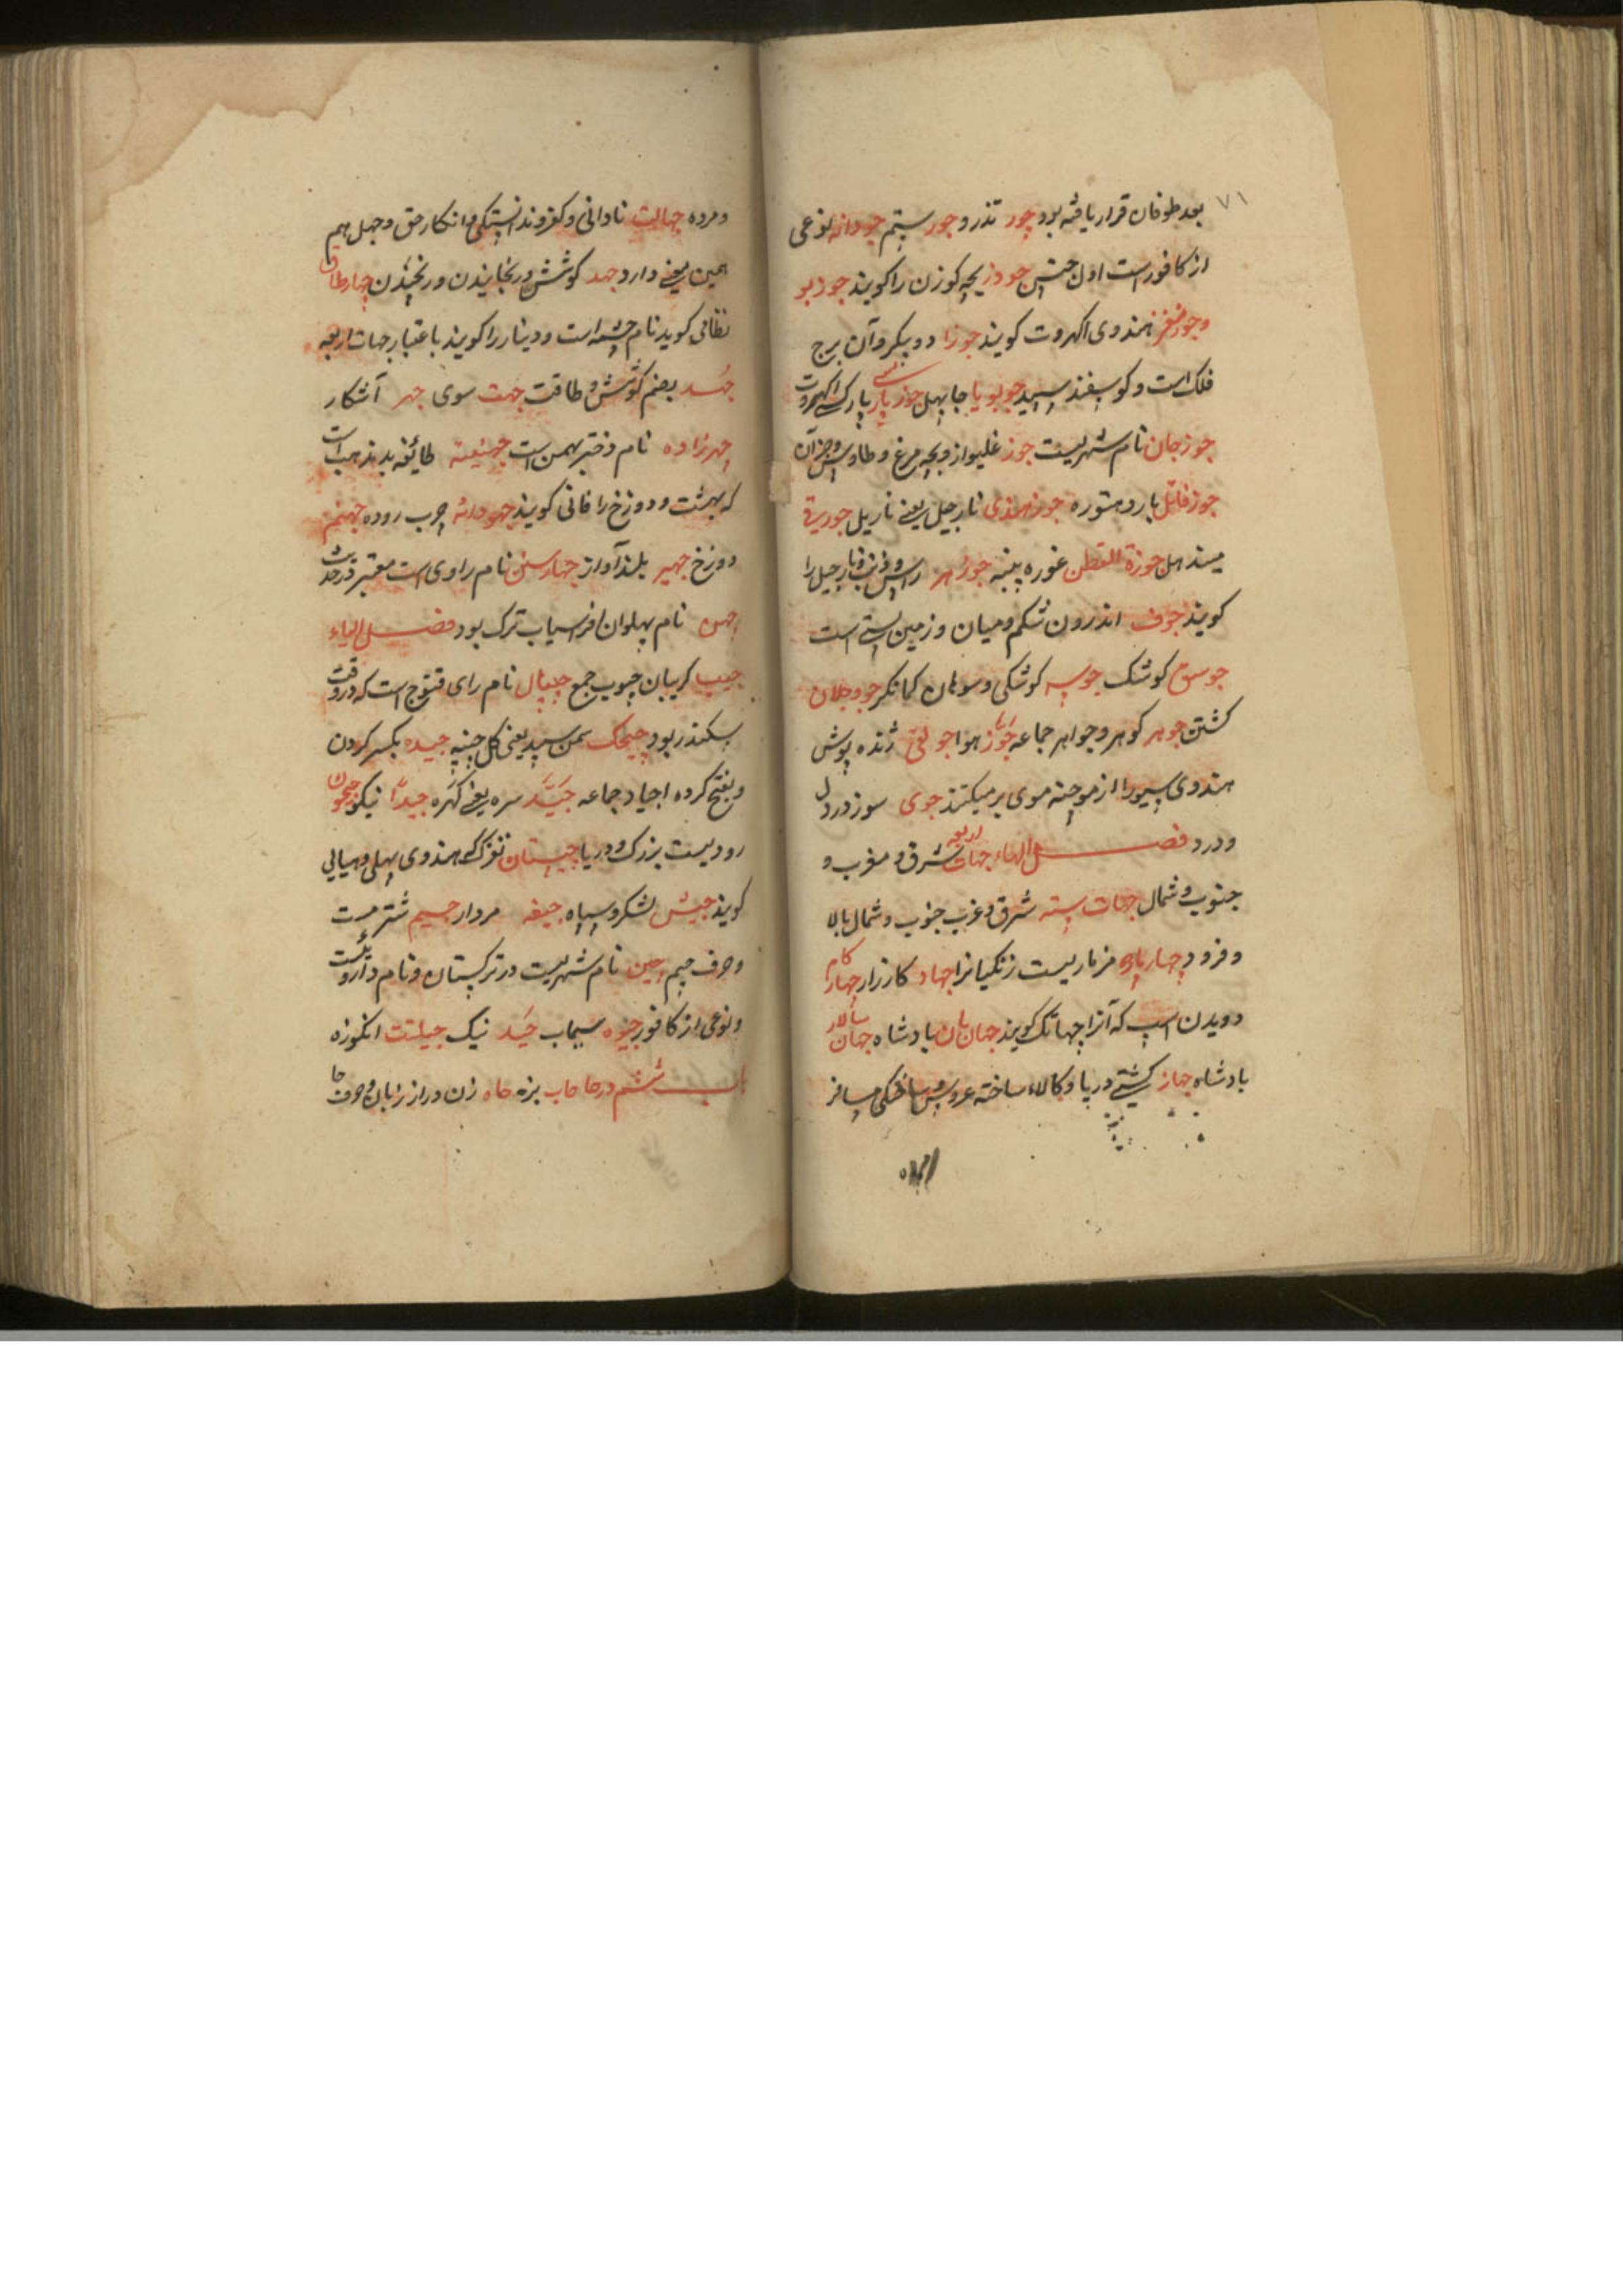 ۷۱
بعد طوفان قرار یافته بود جور تذرو جور ستم جودانه نوعی
از کافور است اول جنس جوذر بچه کوزن را کویند جوز بو
و جوز مغز هندوی اکهروت کویند جوزا دو پیکر و آن برج
فلک است و کوسفند سپید جوبویا جابهل جوز پارسی پارسی اکهروت
جوزجان نام شهریست جوز غلیواز و بچه مرغ و طاوس و جز آن
جوز قاتل بار دهتوره جوز هندی نارجیل یعنی ناریل جوز
میندهل جوزة القطن غوره پنبه جوزهر راس و ذنب و نارجیل را
کویند جوف اندرون شکم و میان و زمین پستی است
جوسق کوشک جوسه کوشکی و سوهان کمانکر جوجلان
کشتن جوهر کوهر و جواهر جماعه جوز هوا جولقی ژنده پوش
هندوی سیورا از موچنه موی بر میکنند جوی سوز درد دل
و درد فصل الهاء جهات اربعه شرق و مغرب و
جنوب و شمال جهات سته شرق و غرب جنوب و شمال بالا
و فرود جهارپاره مزماریست زنکیانرا جهاد کارزار جهار کام
دویدن اسپ که آنرا جهاتک کویند جهانبان بادشاه جهان سالار
بادشاه جهاز کشتی دریا و کالا ساخته عروس و ساختکی مسافر
و مرده جهالت نادانی و کفر و ندانستکی و انکار حق و جهل هم
همین معنی دارد جهد کوشش و رنجانیدن و رنجیدن جهار طاق
نظامی کوید نام چشمه است و دینار را کویند باعتبار جهات اربعه
جهد بضم کوشش و طاقت جهت سوی جهر آشکار
چهرزاده نام دختر بهمن است جهنیته طائفه بد مذهب است
که بهشت و دوزخ را فانی کویند جهودانه چرب روده جهنم
دوزخ جهیر بلند آواز جهار سنن نام راوی است معتبر در حدیث
جهن نام پهلوان افراسیاب ترک بود فصل الیاء
جیب کریبان جیوب جمع جیپال نام رای قنوج است که در وقت
سکندر بود چیچک سمن سپید یعنی کل چنپه جیده بکسر کردن
و بفتح کرده اجیاد جماعه جید سره یعنی کهره جیدا نیکو جیحون
رودیست بزرک و دریا چیستان نغزک که هندوی پهلی و هیالی
کویند جیش لشکر و سپاه جیفه مردار جیم شتر مست
و حرف جیم چین نام شهریست در ترکستان و نام داروئیست
و نوعی از کافور جیوه سیماب جید نیک جیلتت انکوزه
باب ششم در حا حاب بزه حاه زن دراز زبان و حرف حا